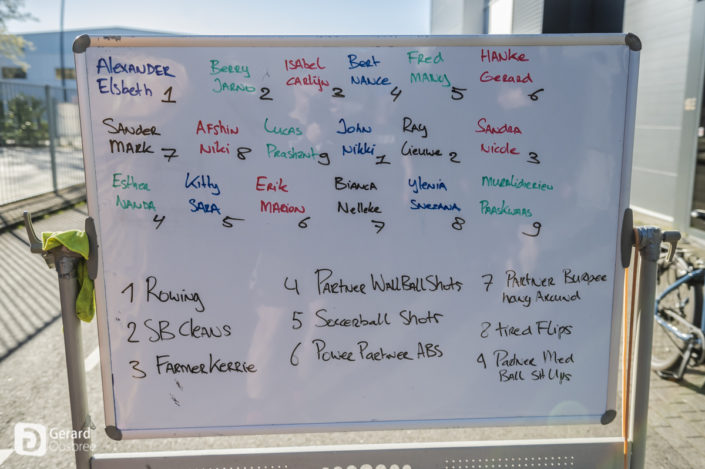 Alexander
Elsbeth 1
Berry
Jarno 2
Isabel
Carlijn 3
Bert
Nance 4
Fred
Mary 5
Hanke
Gerard 6
Sander
Mark 7
Afshin
Niki 8
Lucas
Prashant 9
John
Nikki 1
Ray
Lieuwe 2
Sandra
Nicole 3
Esther
Nanda 4
Kitty
Sara 5
Erik
Marion 6
Bianca
Nelleke 7
Ylenia
Snezana 8
9
1 Rowing
2 SB Cleans
3 FarmerKerrie
4 Partner WallBallShots
5 Soccerball Shots
6 Power Partner ABS
7 Partner Burpee
hang Around
8 tired Flips
9 Partner Med
Ball Sit Ups
Gerard
Oosbree